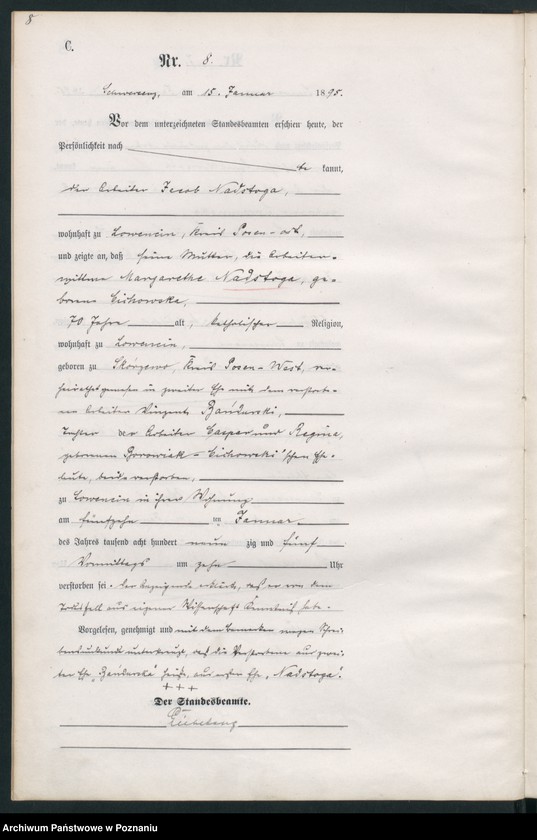 8
C.
Nr. 8.
Schwersenz, am 15. Januar 1895.
Vor dem unterzeichneten Standesbeamten erschien heute, der
Persönlichkeit nach
kannt,
der Arbeiter Jacob Nadstoga,
wohnhaft zu Lowencin, Kreis Posen-Ost,
und zeigte an, daß seine Mutter, die Arbeiter-
wittwe Margarethe Nadstoga, ge-
borene Cichowska,
70 Jahre alt, katholischer Religion,
wohnhaft zu Lowencin,
geboren zu Skórzewo, Kreis Posen-West, ver-
heirathet gewesen in zweiter Ehe mit dem verstorbe-
nen Arbeiter Vinzent Bandurski,
Tochter der Arbeiter Casper und Regine,
geborenen Borowiak - Cichowski'schen Ehe-
leute, beide verstorben,
zu Lowencin in ihrer Wohnung
am fünfzehn ten Januar
des Jahres tausend acht hundert neun zig und fünf
Vormittags um zehn Uhr
verstorben sei. Der Anzeigende erklärte, daß er von dem
Todesfall aus eigener Wissenschaft Kenntniß habe.
Vorgelesen, genehmigt und mit dem Bemerken wegen Schrei-
bensunkunde unterkreuzt, daß die Verstorbene aus zwei-
ter Ehe heiße, aus erster Ehe „Nadstoga".
+ + +
Der Standesbeamte.
Archiwum Państwowe w Poznaniu